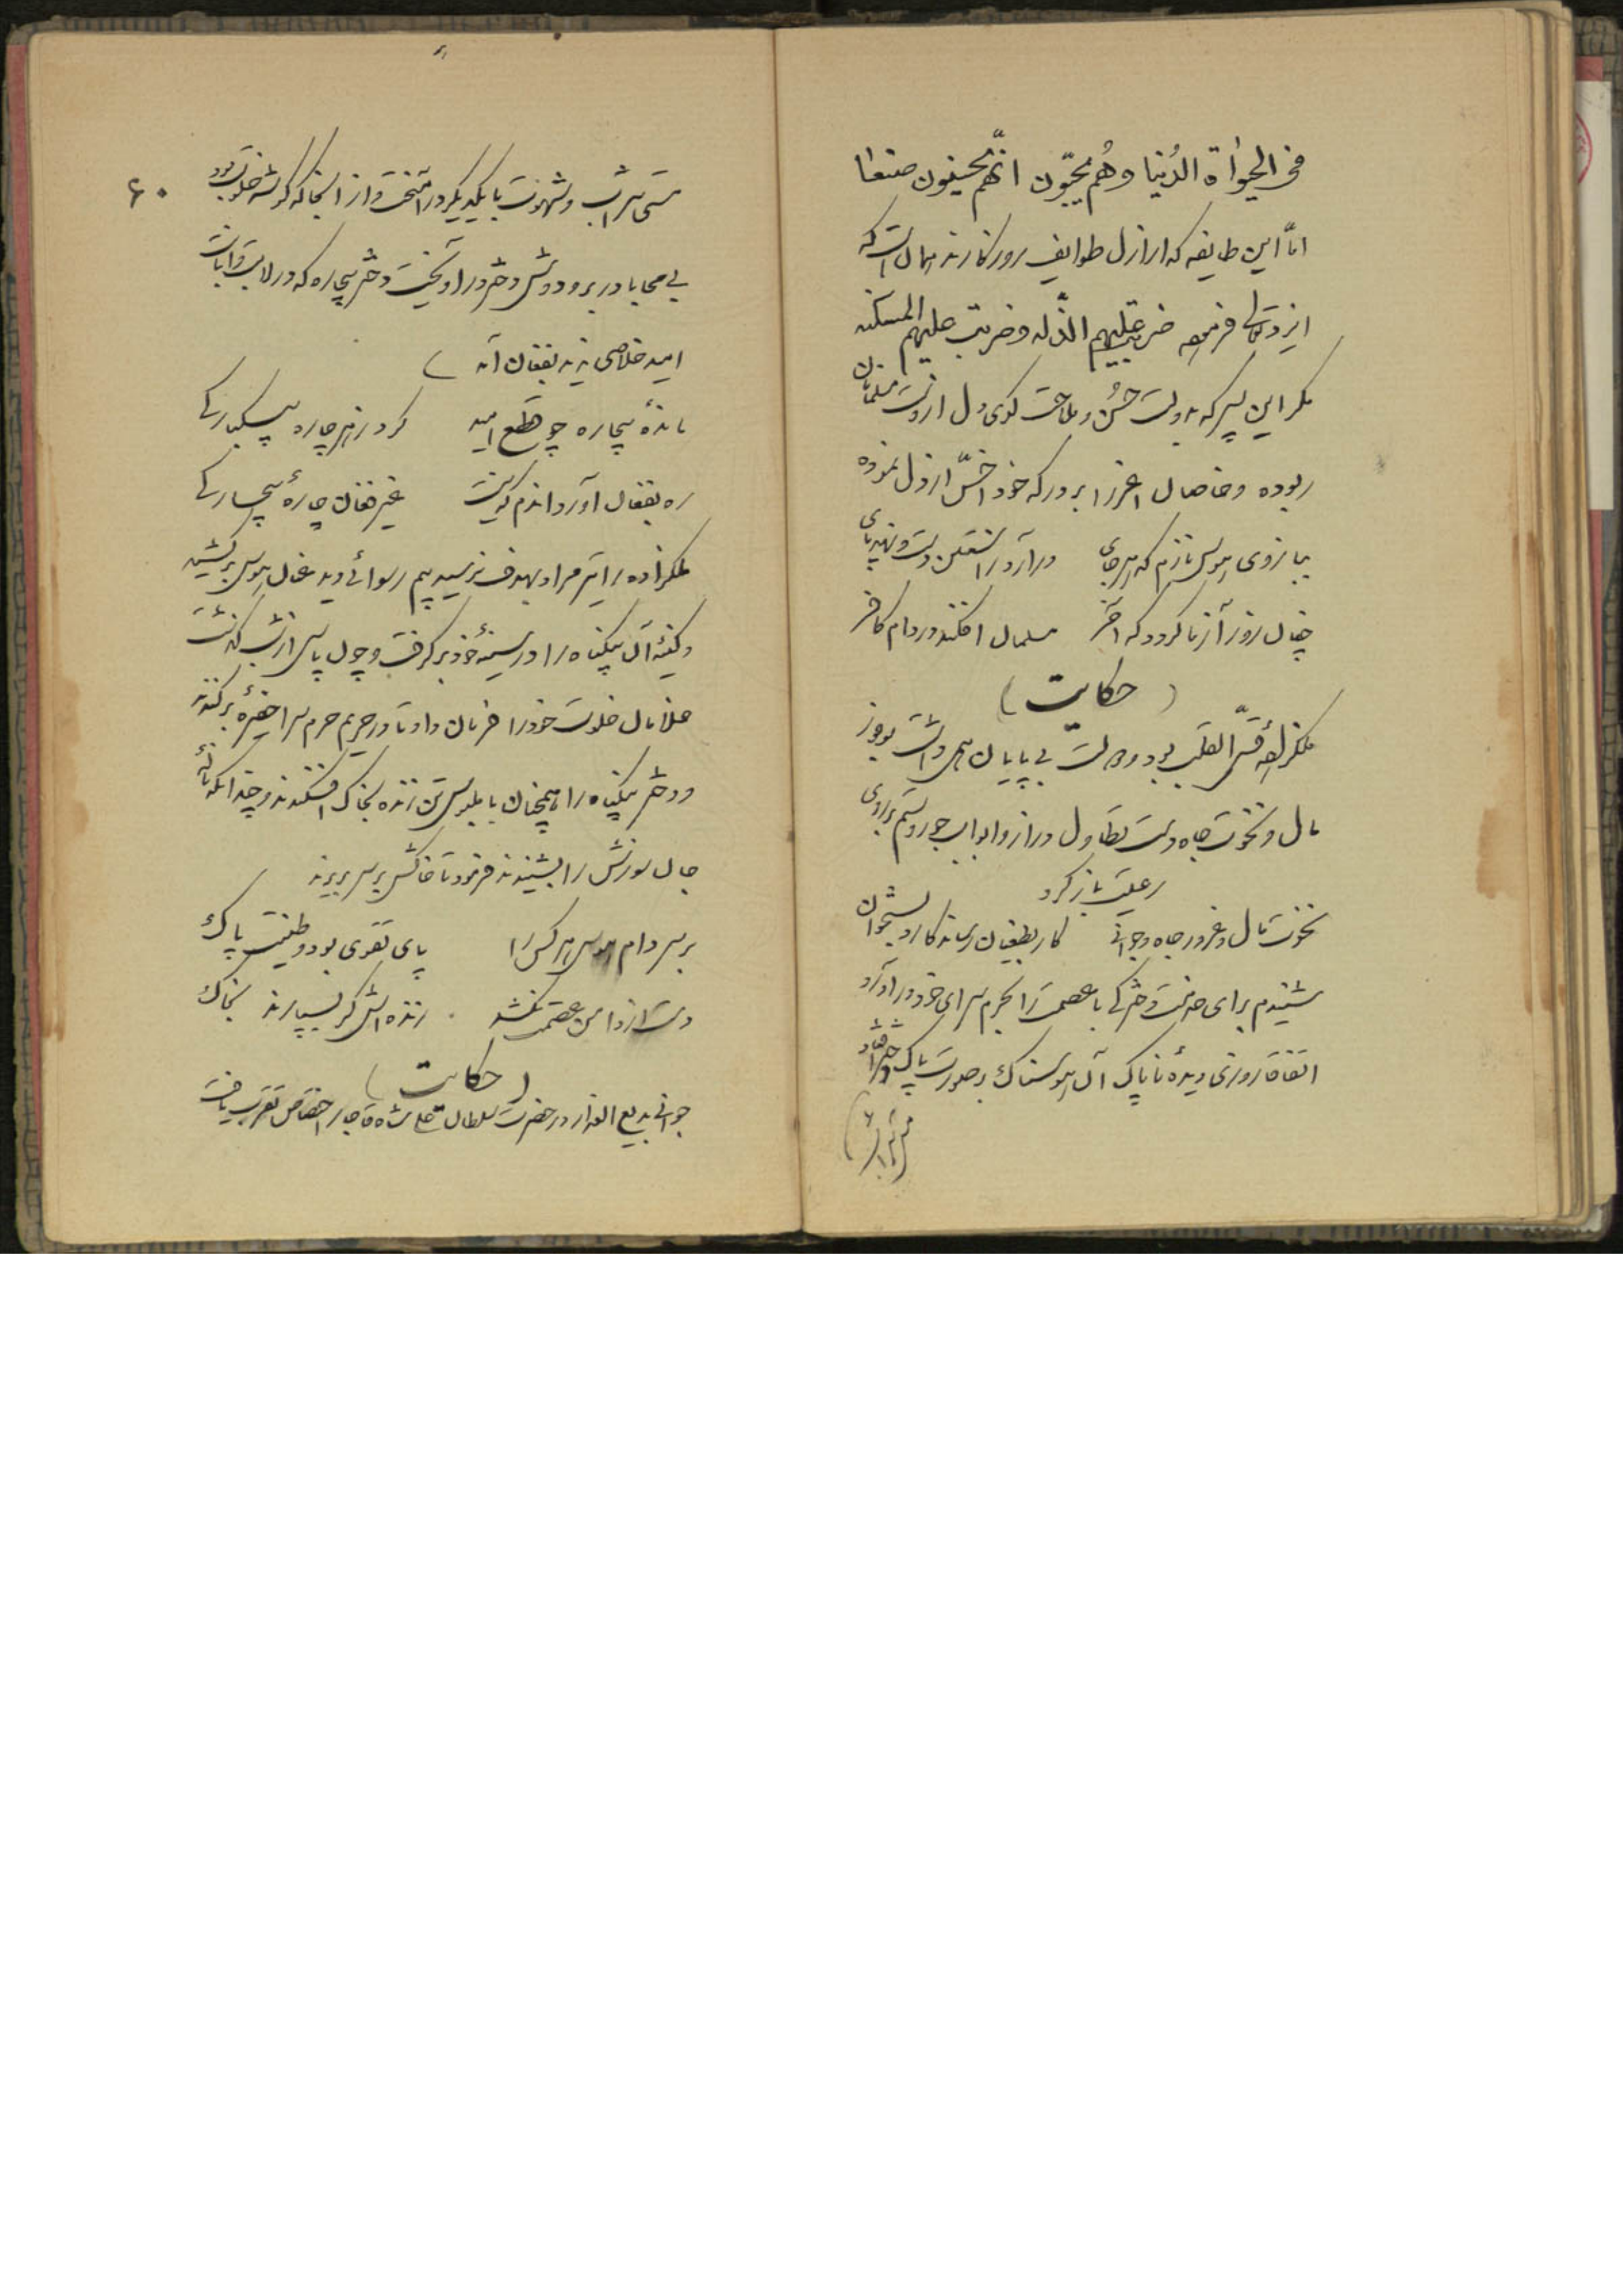 فی الحیوٰاة الدُنیا وهُم یحبّون انّهم یحسنون صنعا
امّا این طایفه که ارازل طوایف روزکارند همان است که
ایزد تعالی فرموده ضربت علیهم الذّله وضربت علیهم المسکنه
مکر این پسر که بدولت حُسن و ملاحت کوی دل از دست مسلمانان
ربوده و خاصان اعزّ را بر درکه خود اخسّ ارذل نموده
ببازوی هوس نازم که هر جای در آرد راستین دست و نهد پای
چنان زور آزما کردد که آخر مسلمان افکند در دام کافر
(حکایت)
ملکزادهٔ قسّی القلب بود و دولت بی پایان همی داشت بوفور
مال و نخوت جاه دست تطاول دراز و ابواب جور و ستم بر روی
رعیت باز کرد
نخوت مال و غرور جاه و جوانی کار بطغیان رساند کارد بستخوان
شنیدم برای خدمت دخترکی با عصمت را بحرم سرای خود در آورد
اتفاقا روزی دیدهٔ ناپاک آن هوسناک بر صورت پاک دختر افتاد
۶۰
مستی شراب و شهوت با یکدیکر در آمیخت و از آنجا که کوشه خلوت بود
بی محابا در بر و دوش دختر در آویخت دختر بیچاره که در لابه و اثابت
امید خلاصی ندید بفغان آمد
ماندهٔ بیچاره چو قطع امید کرد ز هر چاره بیکبارکی
ره بفغان آورد اندم که نیست غیر فغان چارهٔ بیچارکی
ملکزاده را تیر مراد بهدف نرسید بیم رسوائی دید عنان هوس بر کشید
و کینه آن بیکناه را در سینهٔ خود بر کرفت و چون پاسی از شب کذشت
غلامان خلوت خود را فرمان داد تا در حریم حرم سرا حفیره بر کندند
و دختر بیکناه را همچنان با ملبوس تن زنده بخاک افکندند و چندانکه نالهٔ
جان سوزش را بشنیدند فرمود تا خاکش بر سر بریزند
بر سر دام هوس هر کس را پای تقوی بود و طینت پاک
دست از دامن عصمت نکشد زنده اش کر بسپارند بخاک
(حکایت)
جوانی بدیع العذار در حضرت سلطان فتحعلی شاه قاجار اختصاص تقرب یافت